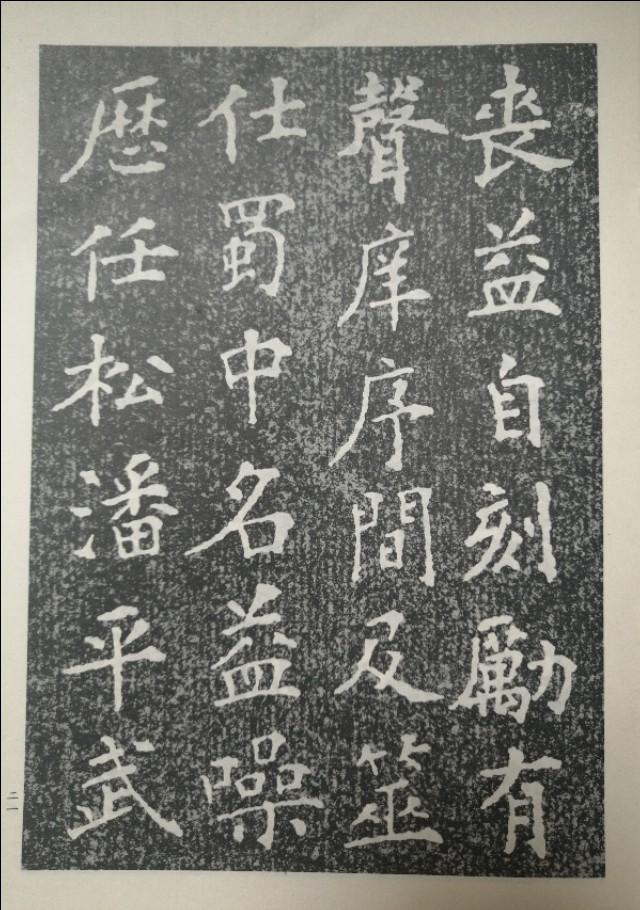 喪益自刻勵有
聲庠序間及筮
仕蜀中名益噪
歴任松潘平武
二一